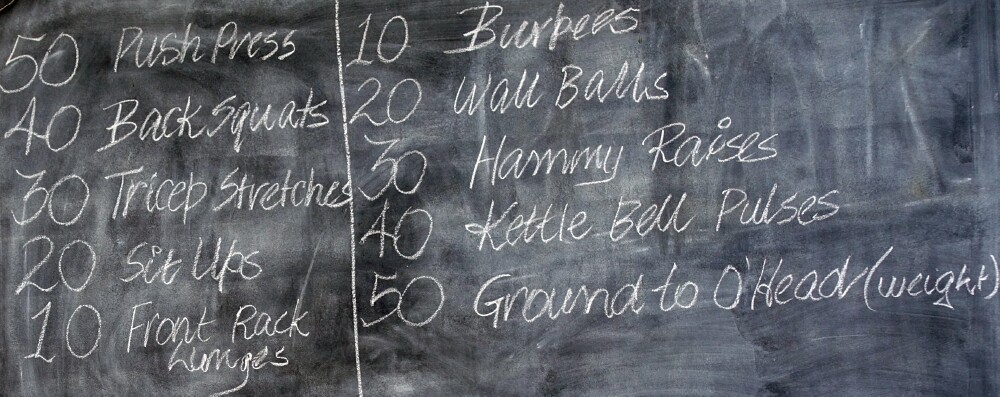 50 Push Press
40 Back Squats
30 Tricep Stretches
20 Sit Ups
10 Front Rack
Lunges
10 Burbees
20 Wall Balls
30 Hammy Raises
40 Kettle Bell Pulses
50 Ground to O'Head (weight)